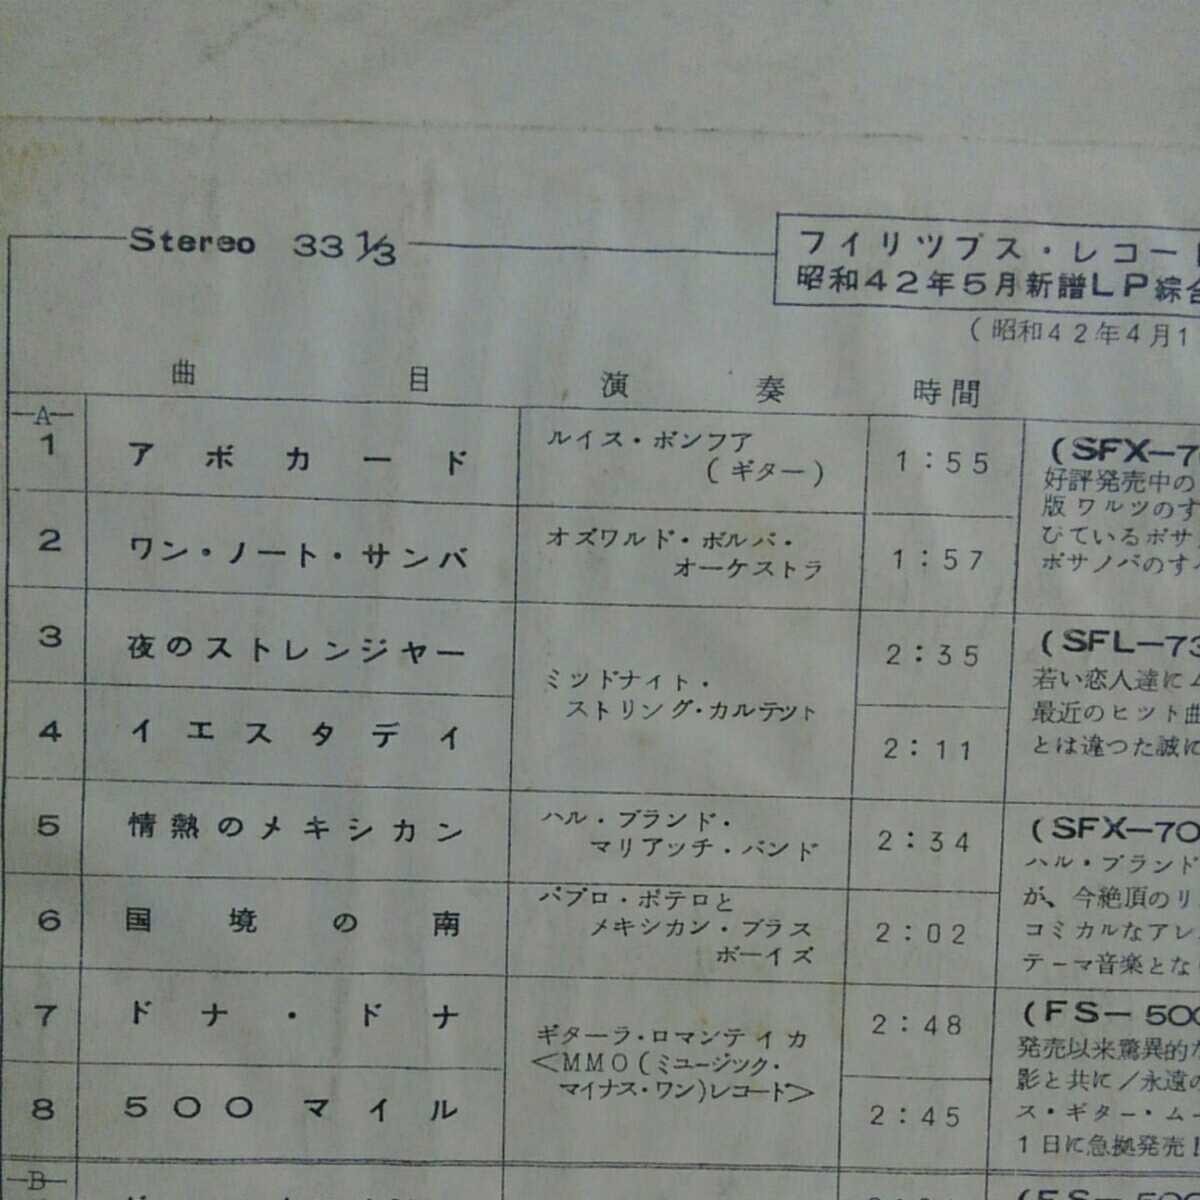 Stereo 33⅓
フイリツプス・レコード
昭和42年5月新譜LP綜合
(昭和42年4月1
曲目 演奏 時間
A
1 アボカード ルイス・ボンフア
(ギター) 1:55
2 ワン・ノート・サンバ オズワルド・ボルバ・
オーケストラ 1:57
(SFX-7
好評発売中の
版ワルツのす
びているボサ
ボサノバのすべ
3 夜のストレンジャー 2:35
ミツドナイト・
ストリング・カルテット
4 イエスタデイ 2:11
(SFL-73
若い恋人達に
最近のヒット曲
とは違つた誠に
5 情熱のメキシカン ハル・ブランド・
マリアッチ・バンド 2:34
6 国境の南 パブロ・ポテロと
メキシカン・ブラス
ボーイズ 2:02
(SFX-70
ハル・ブランド
が、今絶頂のリ
コミカルなアレ
テーマ音楽とな
7 ドナ・ドナ 2:48
ギターラ・ロマンテイカ
<MMO(ミュージック・
マイナス・ワン)レコード>
8 500マイル 2:45
(FS-500
発売以来驚異的な
影と共に/永遠の
ス・ギター・ムー
1日に急拠発売
B
(FS-500